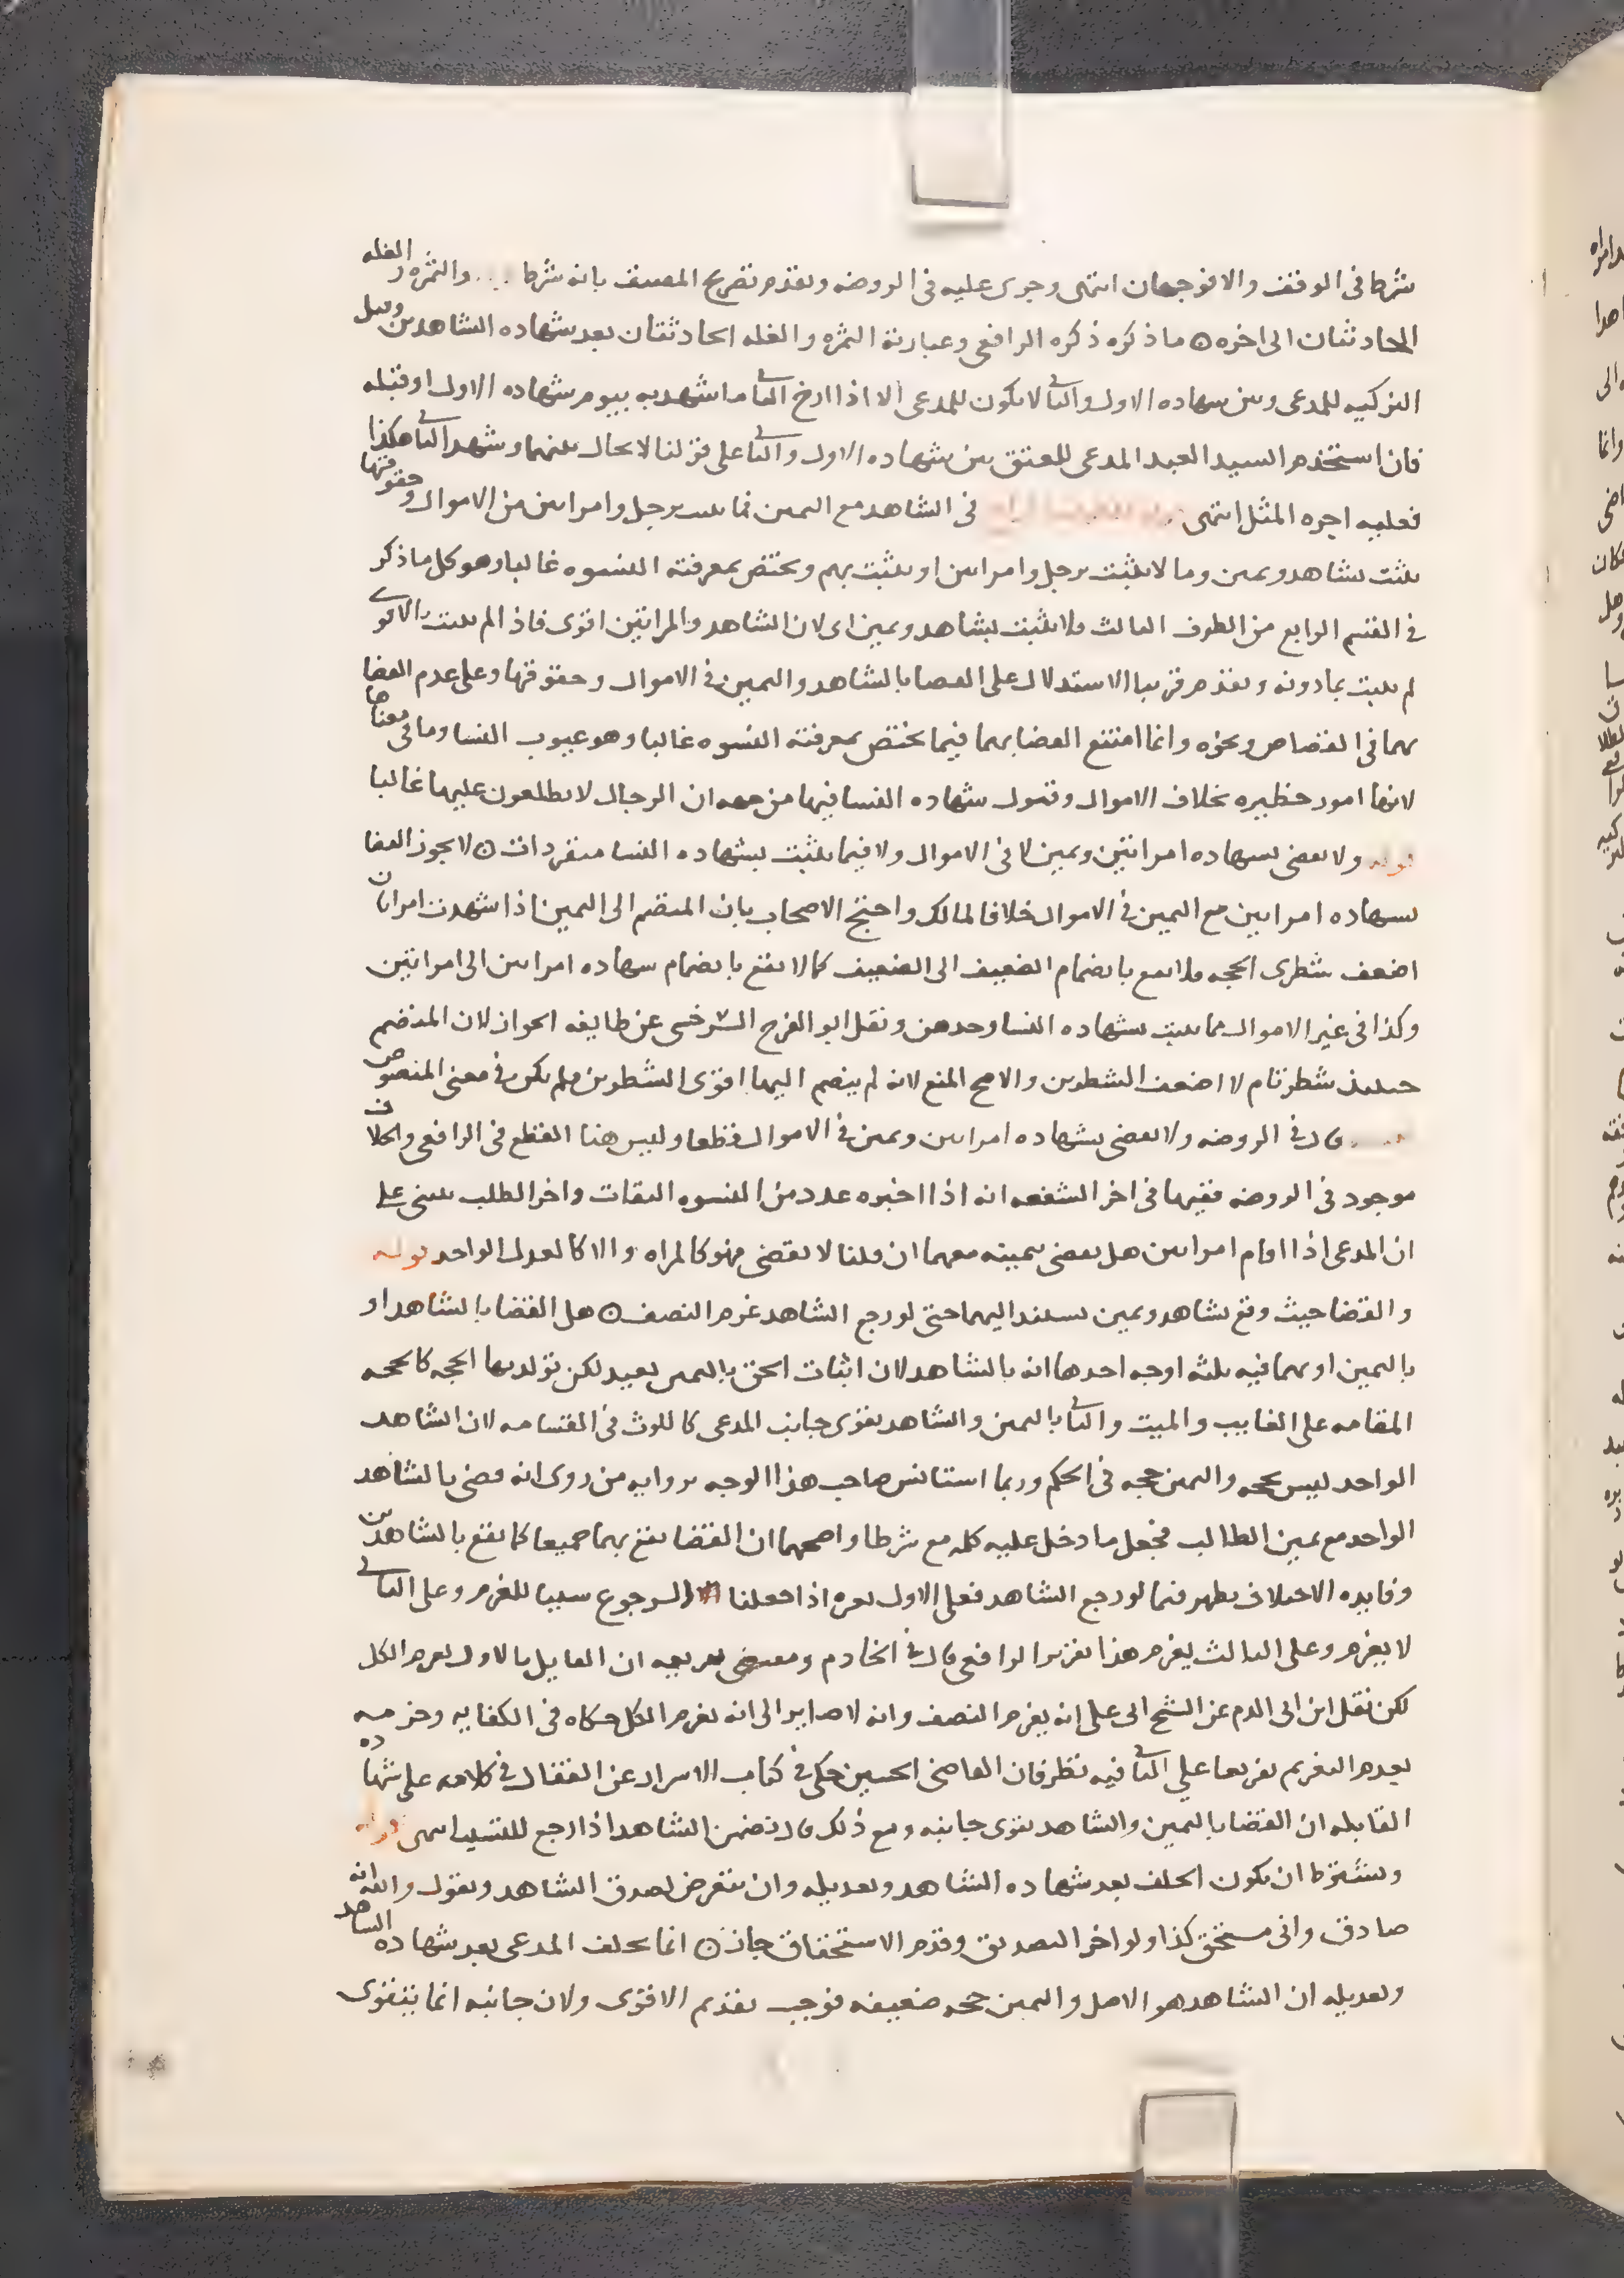 شرطا في الوقف والا فوجهان انتهى وجرى عليه في الروضه وتقدم تصريح المصنف بانه شرط والثمره والغله
الحادثتان الى اخره ه ما ذكره ذكره الرافعي وعبارته الثمره والغله الحادثتان بعد شهاده الشاهدين وقبل
التزكيه للمدعى وبين شهاده الاول والثاني لا يكون للمدعى الا اذا ارخ الثاني ما اشهد به بيوم شهاده الاول او قبله
فان استخدم السيد العبد المدعى للعتق بين شهاده الاول والثاني على قولنا لا يحال بينهما وشهد الثاني هكذا
فعليه اجره المثل انتهى في الشاهد مع اليمين فما يثبت برجل وامراتين من الاموال وحقوقها
يثبت بشاهد ويمين وما لا يثبت برجل وامراتين او يثبت بهم ويختص بمعرفته النسوه غالبا وهو كل ما ذكر
في القسم الرابع من الطرف الثالث فلا يثبت بشاهد ويمين اى لان الشاهد والمراتين اقوى فاذا لم يثبت بالاقوى
لم يثبت بما دونه وتقدم قريبا الاستدلال على القضا بالشاهد واليمين في الاموال وحقوقها وعلى عدم القضا
بهما في القصاص ونحوه وانما امتنع القضا بهما فيما يختص بمعرفته النسوه غالبا وهو عيوب النسا وما في معناها
لانها امور خطيره بخلاف الاموال وقبول شهاده النسا فيها من جهه ان الرجال لا يطلعون عليها غالبا
قوله ولا يقضى بشهاده امراتين ويمين لا في الاموال ولا فيما يثبت بشهاده النسا منفردات ه لا يجوز القضا
بشهاده امراتين مع اليمين في الاموال خلافا لمالك واحتج الاصحاب بان المنضم الى اليمين اذا شهدت امراتان
اضعف شطرى الحجه فلا يقنع بانضمام الضعيف الى الضعيف كما لا يقنع بانضمام شهاده امراتين الى امراتين
وكذا في غير الاموال مما يثبت بشهاده النسا وحدهن ونقل ابو الفرج السرخسى عن طايفه الجواز لان المنضم
حينئذ شطر تام لا اضعف الشطرين والاصح المنع لانه لم ينضم اليها اقوى الشطرين فلم يكن في معنى المنصوص
قال في الروضه ولا يقضى بشهاده امراتين ويمين في الاموال قطعا وليس هنا القطع في الرافعي والخلاف
موجود في الروضه ففيها في اخر الشفعه انه اذا اخبره عدد من النسوه الثقات واخر الطلب يبنى على
ان المدعى اذا اقام امراتين هل يقضى بيمينه معهما ان قلنا لا يقضى فهو كالمراه والا كالعدل الواحد قوله
والقضا حيث وقع بشاهد ويمين يستند اليهما حتى لو رجع الشاهد غرم النصف ه هل القضا بالشاهد او
باليمين او بهما فيه ثلثه اوجه احدها انه بالشاهد لان اثبات الحق باليمين بعيد لكن تولد بها الحجه كالحجه
المقامه على الغايب والميت والثاني باليمين والشاهد يقوى جانب المدعى كاللوث في القسامه لان الشاهد
الواحد ليس بحجه واليمين حجه في الحكم وربما استانس صاحب هذا الوجه بروايه من روى انه قضى بالشاهد
الواحد مع يمين الطالب فجعل ما دخل عليه كله مع شرطا واصحهما ان القضا يقع بهما جميعا كما يقع بالشاهدين
وفايده الاختلاف تظهر فيما لو رجع الشاهد فعلى الاول يغرم اذا جعلنا الرجوع سببا للغرم وعلى الثاني
لا يغرم وعلى الثالث يغرم هذا تقرير الرافعي قال في الخادم ومقتضى تفريعه ان القايل بالاول يغرم الكل
لكن نقل ابن ابى الدم عن الشيخ ابى على انه يغرم النصف وانه لا صاير الى انه يغرم الكل حكاه في الكفايه وجزمه
بعدم التغريم تفريعا على الثاني فيه نظر فان القاضى الحسين حكى في كتاب الاسرار عن القفال في كلامه على شهاده
القابله ان القضا باليمين والشاهد يقوى جانبه ومع ذلك قال تضمن الشاهد اذا رجع للتسبب انتهى قوله
ويشترط ان يكون الحلف بعد شهاده الشاهد وتعديله وان يتعرض لصدق الشاهد ويقول والله انه
صادق وانى مستحق كذا ولو اخر التصديق وقدم الاستحقاق جاز ه انما يحلف المدعى بعد شهاده الشاهد
وتعديله ان الشاهد هو الاصل واليمين حجه ضعيفه فوجب تقديم الاقوى ولان جانبه انما يتقوى